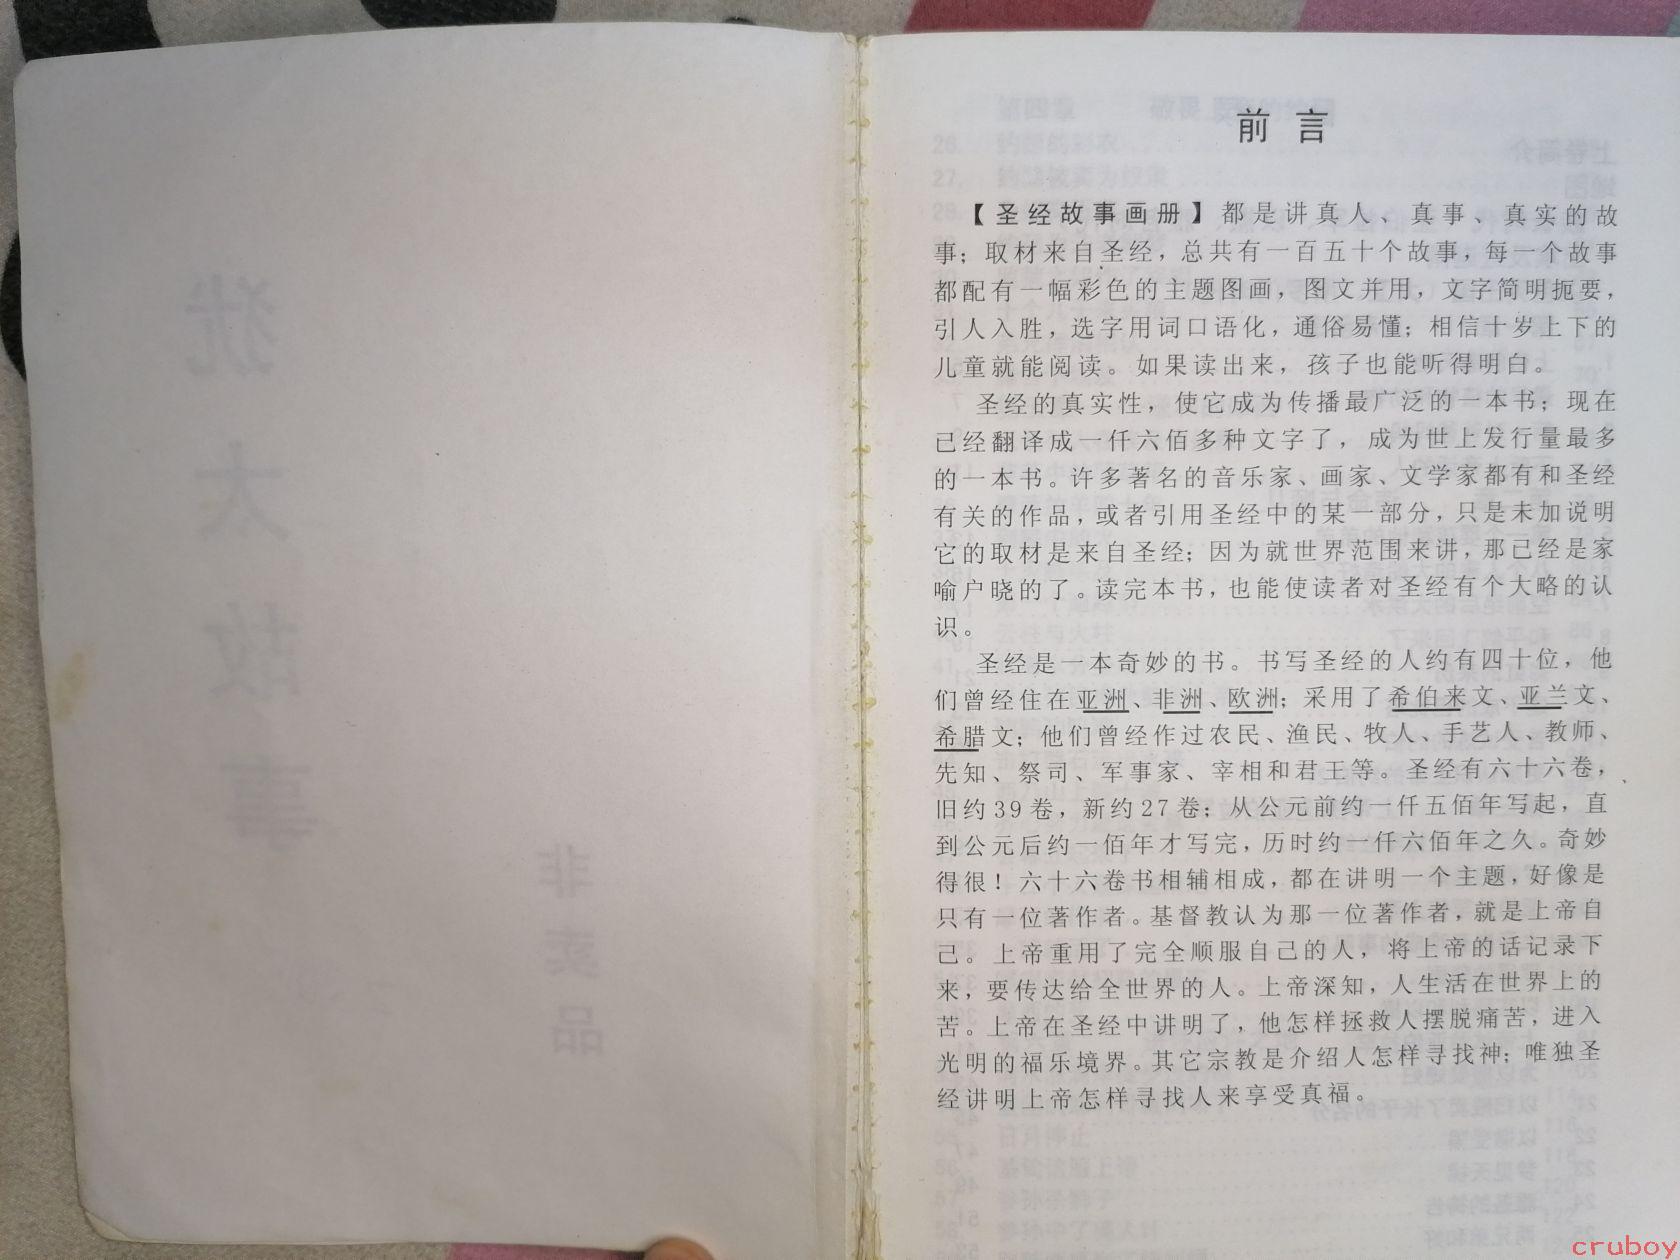 犹
太
故
事
非
卖
品
前言
【圣经故事画册】都是讲真人、真事、真实的故
事；取材来自圣经，总共有一百五十个故事，每一个故事
都配有一幅彩色的主题图画，图文并用，文字简明扼要，
引人入胜，选字用词口语化，通俗易懂；相信十岁上下的
儿童就能阅读。如果读出来，孩子也能听得明白。
圣经的真实性，使它成为传播最广泛的一本书；现在
已经翻译成一仟六佰多种文字了，成为世上发行量最多
的一本书。许多著名的音乐家、画家、文学家都有和圣经
有关的作品，或者引用圣经中的某一部分，只是未加说明
它的取材是来自圣经；因为就世界范围来讲，那已经是家
喻户晓的了。读完本书，也能使读者对圣经有个大略的认
识。
圣经是一本奇妙的书。书写圣经的人约有四十位，他
们曾经住在亚洲、非洲、欧洲；采用了希伯来文、亚兰文、
希腊文；他们曾经作过农民、渔民、牧人、手艺人、教师、
先知、祭司、军事家、宰相和君王等。圣经有六十六卷，
旧约39卷，新约27卷；从公元前约一仟五佰年写起，直
到公元后约一佰年才写完，历时约一仟六佰年之久。奇妙
得很！六十六卷书相辅相成，都在讲明一个主题，好像是
只有一位著作者。基督教认为那一位著作者，就是上帝自
己。上帝重用了完全顺服自己的人，将上帝的话记录下
来，要传达给全世界的人。上帝深知，人生活在世界上的
苦。上帝在圣经中讲明了，他怎样拯救人摆脱痛苦，进入
光明的福乐境界。其它宗教是介绍人怎样寻找神；唯独圣
经讲明上帝怎样寻找人来享受真福。
cruboy